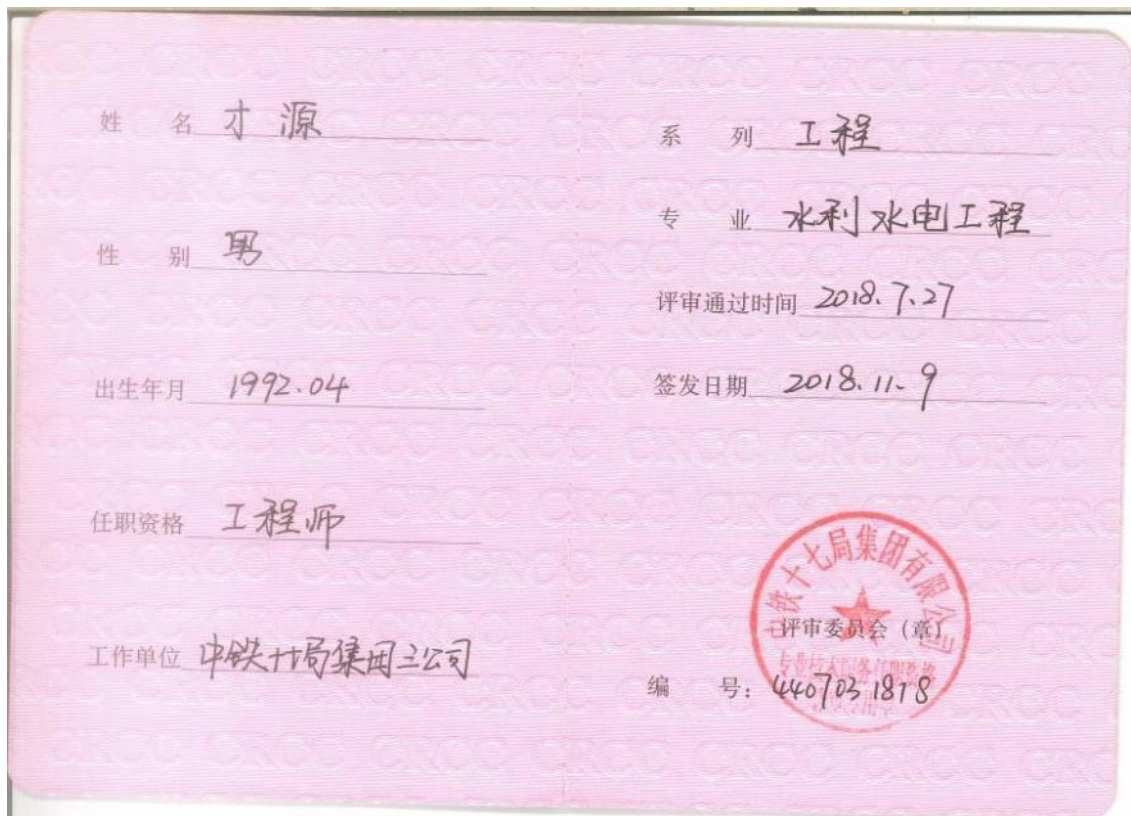 姓 名 才源
性 别 男
出生年月 1992.04
任职资格 工程师
工作单位 中铁十七局集团三公司
系 列 工程
专 业 水利水电工程
评审通过时间 2018.7.27
签发日期 2018.11.9
中铁十七局集团有限公司
评审委员会（章）
编 号：4407031818